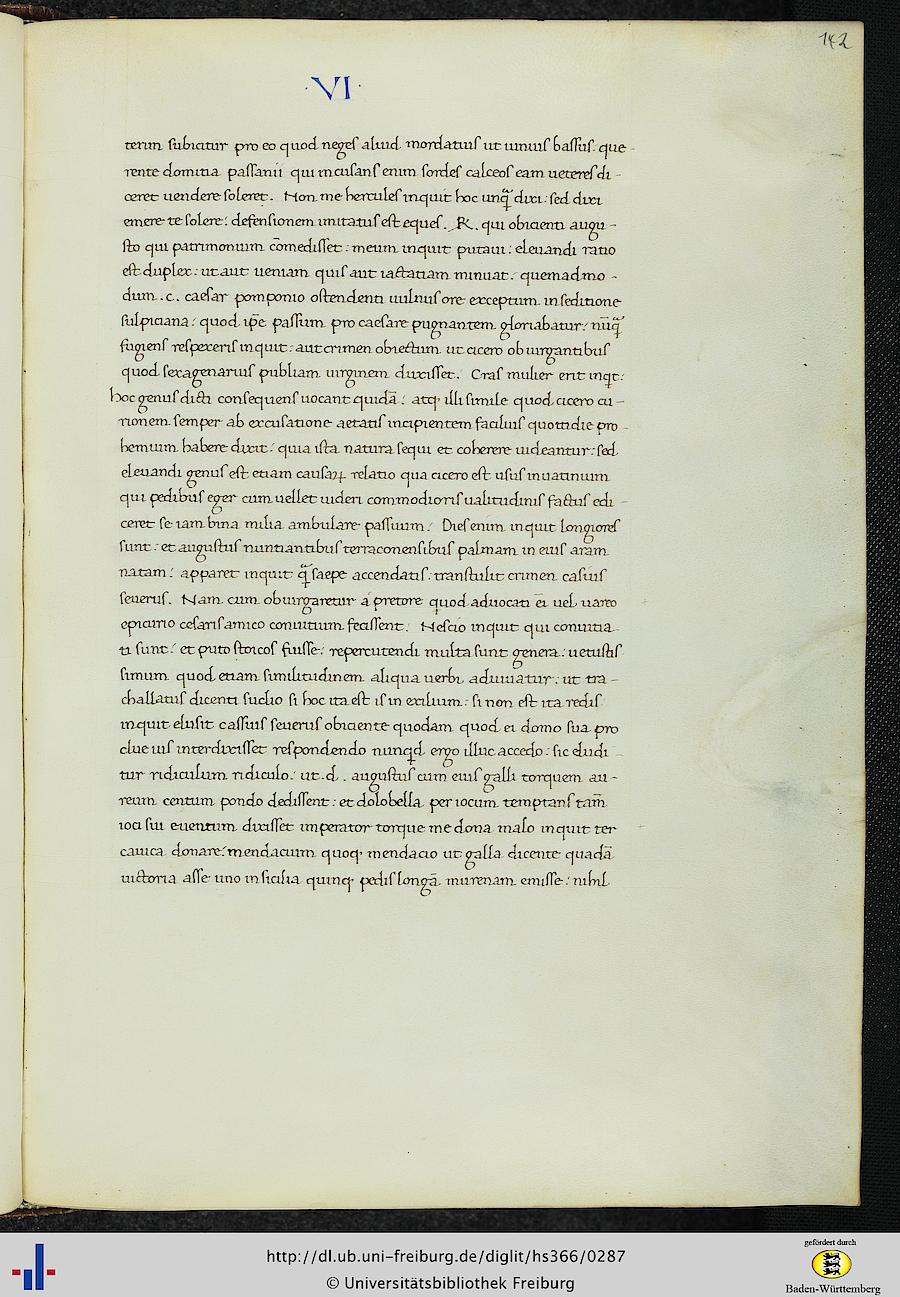 142
·VI·
terım subicitur pro eo quod neges aliud mordatius ut iunius bassus. que-
rente domitia passanii qui incusans enim sordes calceos eam ueteres di-
ceret uendere soleret. Non me hercules inquit hoc unq̃ dixi: sed dixi
emere te solere: defensionem imitatus est eques .R. qui obicienti augu-
sto qui patrimonium cōmedisset: meum inquit putaui: eleuandi ratio
est duplex: ut aut ueniam quis aut iactatiam minuat. quemadmo-
dum .c. caesar pomponio ostendenti uulnus ore exceptum in seditione
sulpiciana: quod ip̃e passum pro caesare pugnantem gloriabatur: nūq̃
fugiens respexeris inquit: aut crimen obiectum ut cicero obiurgantibus
quod sexagenarius publiam uirginem duxisset. Cras mulier erit inqt:
hoc genus dicti consequens uocant quidā: atq; illi simile quod cicero cu-
rionem semper ab excusatione aetatis incipientem facilius quottidie pro-
hemium habere dixit: quia ista natura sequi et coherere uideantur: sed
eleuandi genus est etiam causaꝝ relatio qua cicero est usus in uatinium
qui pedibus eger cum uellet uideri commodioris ualitudinis factus edi-
ceret se iam bina milia ambulare passuum: Dies enim inquit longiores
sunt: et augustus nuntiantibus terraconensibus palmam in eius aram
natam: apparet inquit q̃ saepe accendatis: transtulit crimen casius
seuerus. Nam cum obiurgaretur a pretore quod aduocati ei uel uareo
epicurio cesaris amico conuitium fecissent: Nescio inquit qui conuitia-
ti sunt: et puto stoicos fuisse: repercutendi multa sunt genera: uetustis-
simum quod etiam similitudinem aliqua uerbi adiuuatur: ut tra-
challatus dicenti suelio si hoc ita est is in exilium: si non est ita redis
inquit elusit cassius seuerus obiciente quodam quod ei domo sua pro
clue ius interdixisset respondendo nunqd ergo illuc accedo: sic eludi-
tur ridiculum ridiculo: ut .d. augustus cum eius galli torquem au-
reum centum pondo dedissent: et dolobella per iocum temptans tam̄
ioci sui euentum dixisset imperator torque me dona malo inquit te c
cauica donare: mendacium quoq; mendacio ut galla dicente quadā
uictoria asse uno in sicilia quinq; pedis longā murenam emisse: nihil
http://dl.ub.uni-freiburg.de/diglit/hs366/0287
© Universitätsbibliothek Freiburg
gefördert durch
Baden-Württemberg